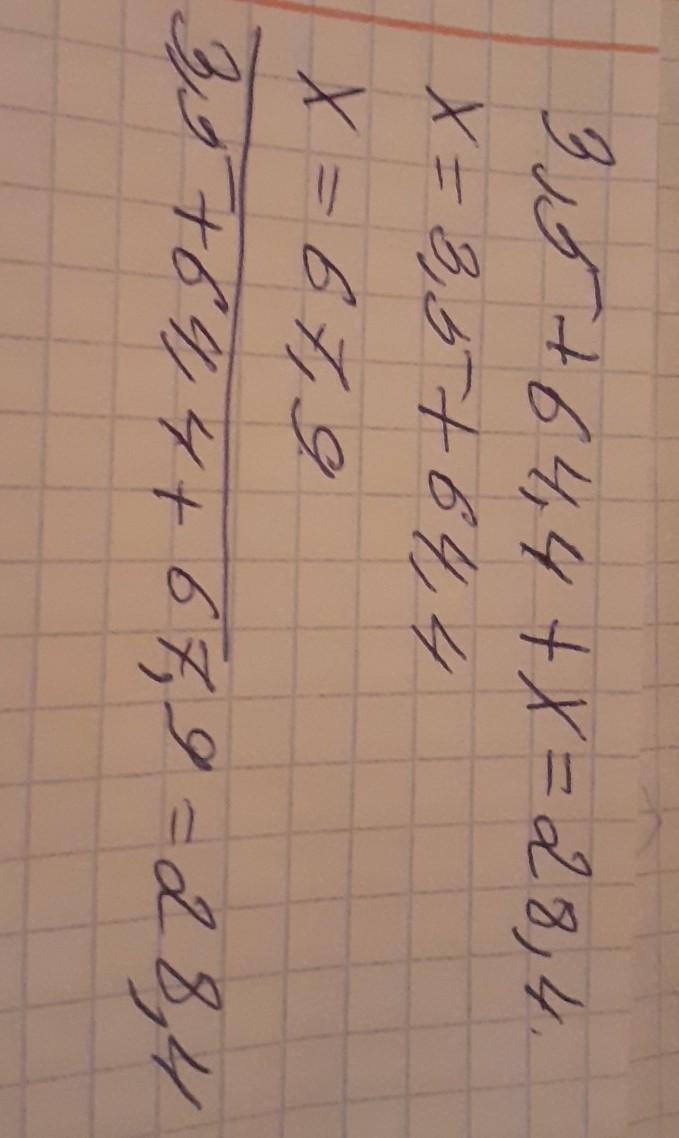 3,5 + 64,4 + x = 28,4.
x = 3,5 + 64,4
x = 67,9
3,5 + 64,4 + 67,9 = 28,4